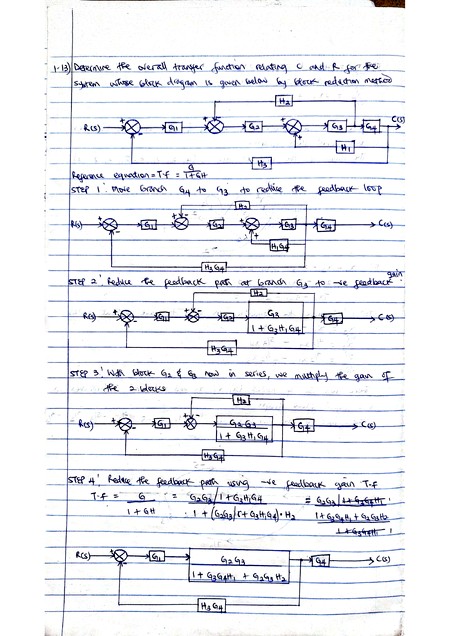 1.13) Determine the overall transfer function relating C and R for the
system whose block diagram is given below by block reduction method
H2
R(s) G1 G2 G3 G4 C(s)
H1
H3
Reference equation = T.f = G / 1+GH
STEP 1: Move branch G4 to G3 to reduce the feedback loop
H2
R(s) G1 G2 G3 G4 C(s)
H1G4
H3G4
STEP 2: Reduce the feedback path at branch G3 to -ve feedback gain
H2
R(s) G1 G2 G3 / 1 + G3H1G4 G4 C(s)
H3G4
STEP 3: With block G2 & G3 now in series, we multiply the gain of
the 2 blocks
H2
R(s) G1 G2G3 / 1 + G3H1G4 G4 C(s)
H3G4
STEP 4: Reduce the feedback path using -ve feedback gain T.f
T.f = G / 1+GH = G2G3/1+G3H1G4 / 1+(G2G3/1+G3H1G4)·H2 = G2G3/1+G3G4H1 / 1+G3G4H1+G2G3H2 / 1+G3G4H1
R(s) G1 G2G3 / 1+G3G4H1 + G2G3H2 G4 C(s)
H3G4